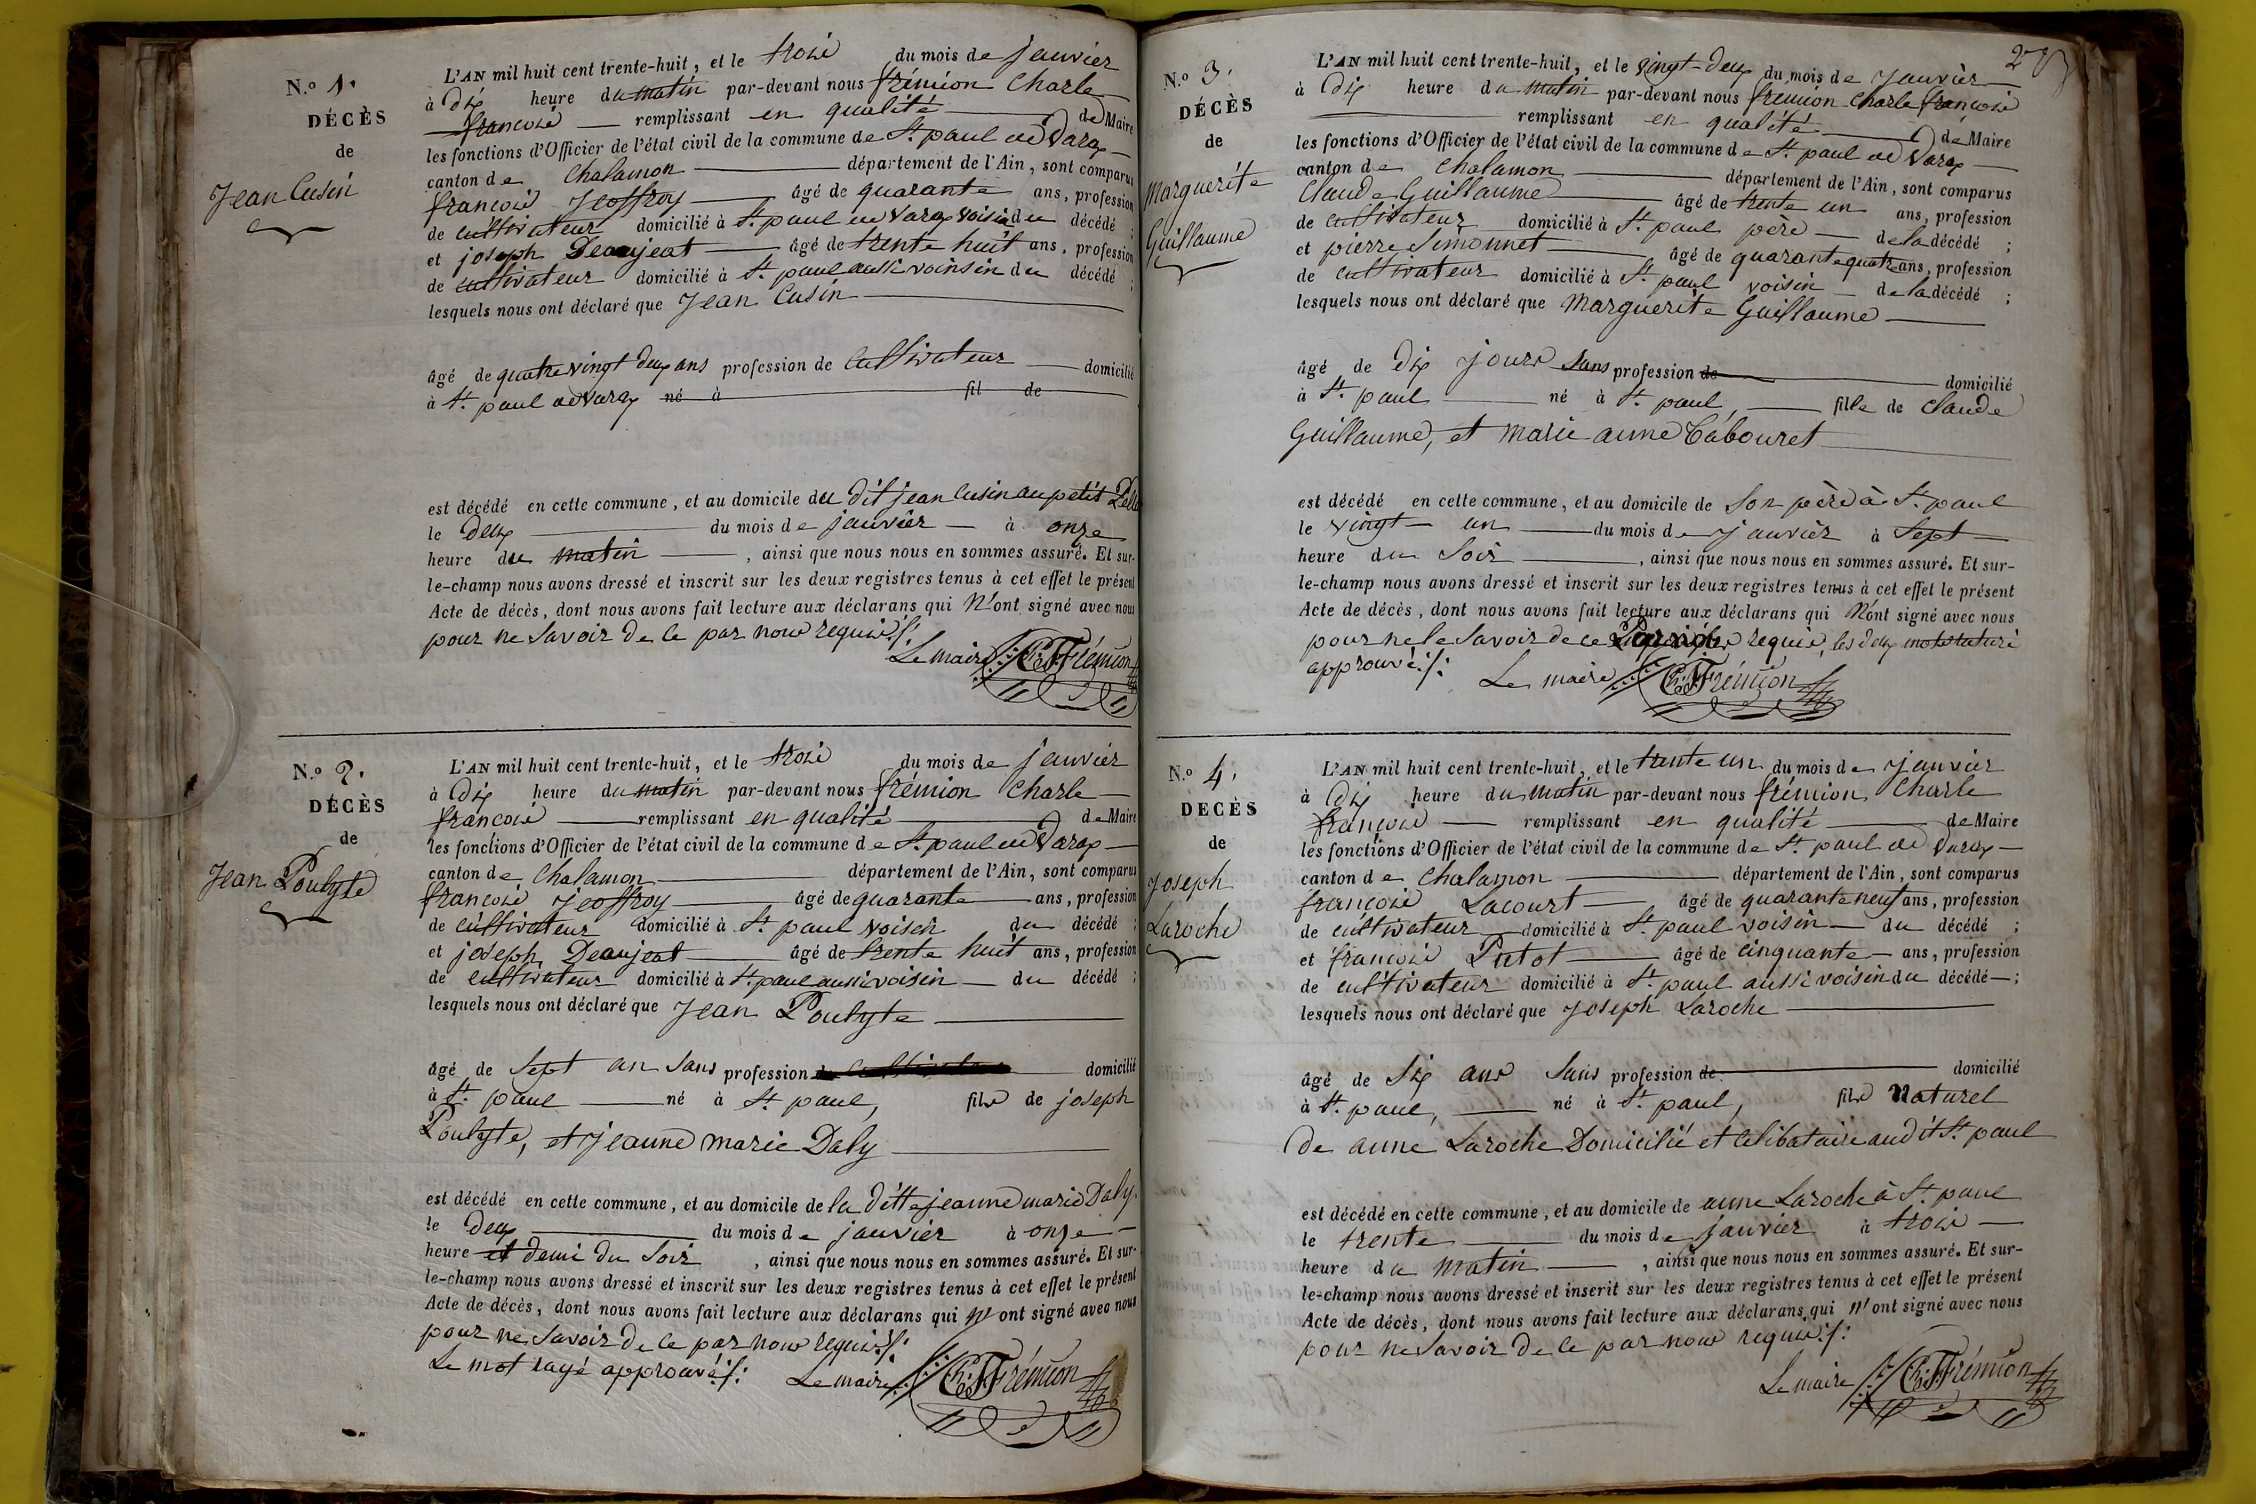 N.o 1.
DÉCÈS
de
Jean Cusin
L'AN mil huit cent trente-huit, et le trois du mois de janvier
à dix heure du matin par-devant nous frémion Charle
francois remplissant en qualité de Maire
les fonctions d'Officier de l'état civil de la commune de St. paul de Varax
canton de Chalamon département de l'Ain, sont comparus
francois Jeoffroy âgé de quarante ans, profession
de cultivateur domicilié à St. paul de varax voisin du décédé ;
et joseph Deaujeat âgé de trente huit ans, profession
de cultivateur domicilié à St. paul aussi voinsin du décédé ;
lesquels nous ont déclaré que Jean Cusin
âgé de quatre vingt deux ans profession de Cultivateur domicilié
à St. paul de varax né à fil de
est décédé en cette commune, et au domicile du dit jean Cusin au petit
le deux du mois de janvier à onze
heure du matin , ainsi que nous nous en sommes assuré. Et sur-
le-champ nous avons dressé et inscrit sur les deux registres tenus à cet effet le présent
Acte de décès, dont nous avons fait lecture aux déclarans qui N'ont signé avec nous
pour ne Savoir de ce par nous requis ./.
Le maire Ch. F. Frémion
N.o 2.
DÉCÈS
de
Jean Poulyte
L'AN mil huit cent trente-huit, et le trois du mois de janvier
à dix heure du matin par-devant nous frémion Charle
francois remplissant en qualité de Maire
les fonctions d'Officier de l'état civil de la commune de St. paul de Varax
canton de Chalamon département de l'Ain, sont comparus
francois Jeoffroy âgé de quarante ans, profession
de cultivateur domicilié à St. paul voisin du décédé ;
et joseph Deaujeat âgé de trente huit ans, profession
de cultivateur domicilié à St. paul aussi voisin du décédé ;
lesquels nous ont déclaré que Jean Poulyte
âgé de Sept an Sans profession de cultivateur domicilié
à St. paul né à St. paul, fils de joseph
Poulyte, et jeanne marie Daly
est décédé en cette commune, et au domicile de la ditte jeanne marie Daly.
le deux du mois de janvier à onze
heure et demi du Soir , ainsi que nous nous en sommes assuré. Et sur-
le-champ nous avons dressé et inscrit sur les deux registres tenus à cet effet le présent
Acte de décès, dont nous avons fait lecture aux déclarans qui N'ont signé avec nous
pour ne Savoir de ce par nous requis ./:
Le mot rayé approuvé ./: Le maire Ch. F. Frémion
N.o 3.
DÉCÈS
de
Marguerite
Guillaume
L'AN mil huit cent trente-huit, et le vingt-deux du mois de Janvier
à dix heure du matin par-devant nous frémion Charle francois
remplissant en qualité de Maire
les fonctions d'Officier de l'état civil de la commune de St. paul de Varax
canton de Chalamon département de l'Ain, sont comparus
Claude Guillaume âgé de trente un ans, profession
de cultivateur domicilié à St. paul père de la décédé ;
et pierre Simonnet âgé de quarante quatre ans, profession
de cultivateur domicilié à St. paul voisin de la décédé ;
lesquels nous ont déclaré que Marguerite Guillaume
âgé de dix jours Sans profession de domicilié
à St. paul né à St. paul, fille de Claude
Guillaume, et Marie anne Cabouret
est décédé en cette commune, et au domicile de Son père à St. paul
le vingt un du mois de janvier à Sept
heure du Soir , ainsi que nous nous en sommes assuré. Et sur-
le-champ nous avons dressé et inscrit sur les deux registres tenus à cet effet le présent
Acte de décès, dont nous avons fait lecture aux déclarans qui N'ont signé avec nous
pour ne le Savoir de ce requis, les deux mots
approuvé ./: Le maire Ch. F. Frémion
N.o 4.
DÉCÈS
de
Joseph
Laroche
L'AN mil huit cent trente-huit, et le trente un du mois de Janvier
à dix heure du matin par-devant nous frémion Charle
françois remplissant en qualité de Maire
les fonctions d'Officier de l'état civil de la commune de St. paul de Varax
canton de Chalamon département de l'Ain, sont comparus
françois Lacourt âgé de quarante neuf ans, profession
de cultivateur domicilié à St. paul voisin du décédé ;
et francois Putot âgé de cinquante ans, profession
de cultivateur domicilié à St. paul aussi voisin du décédé ;
lesquels nous ont déclaré que Joseph Laroche
âgé de Six ans Sans profession de domicilié
à St. paul, né à St. paul, fils Naturel
de anne Laroche Domicilié et Celibataire audit St. paul
est décédé en cette commune, et au domicile de anne Laroche à St. paul
le trente du mois de janvier à trois
heure du matin , ainsi que nous nous en sommes assuré. Et sur-
le-champ nous avons dressé et inscrit sur les deux registres tenus à cet effet le présent
Acte de décès, dont nous avons fait lecture aux déclarans qui N'ont signé avec nous
pour ne Savoir de ce par nous requis ./:
Le maire Ch. F. Frémion